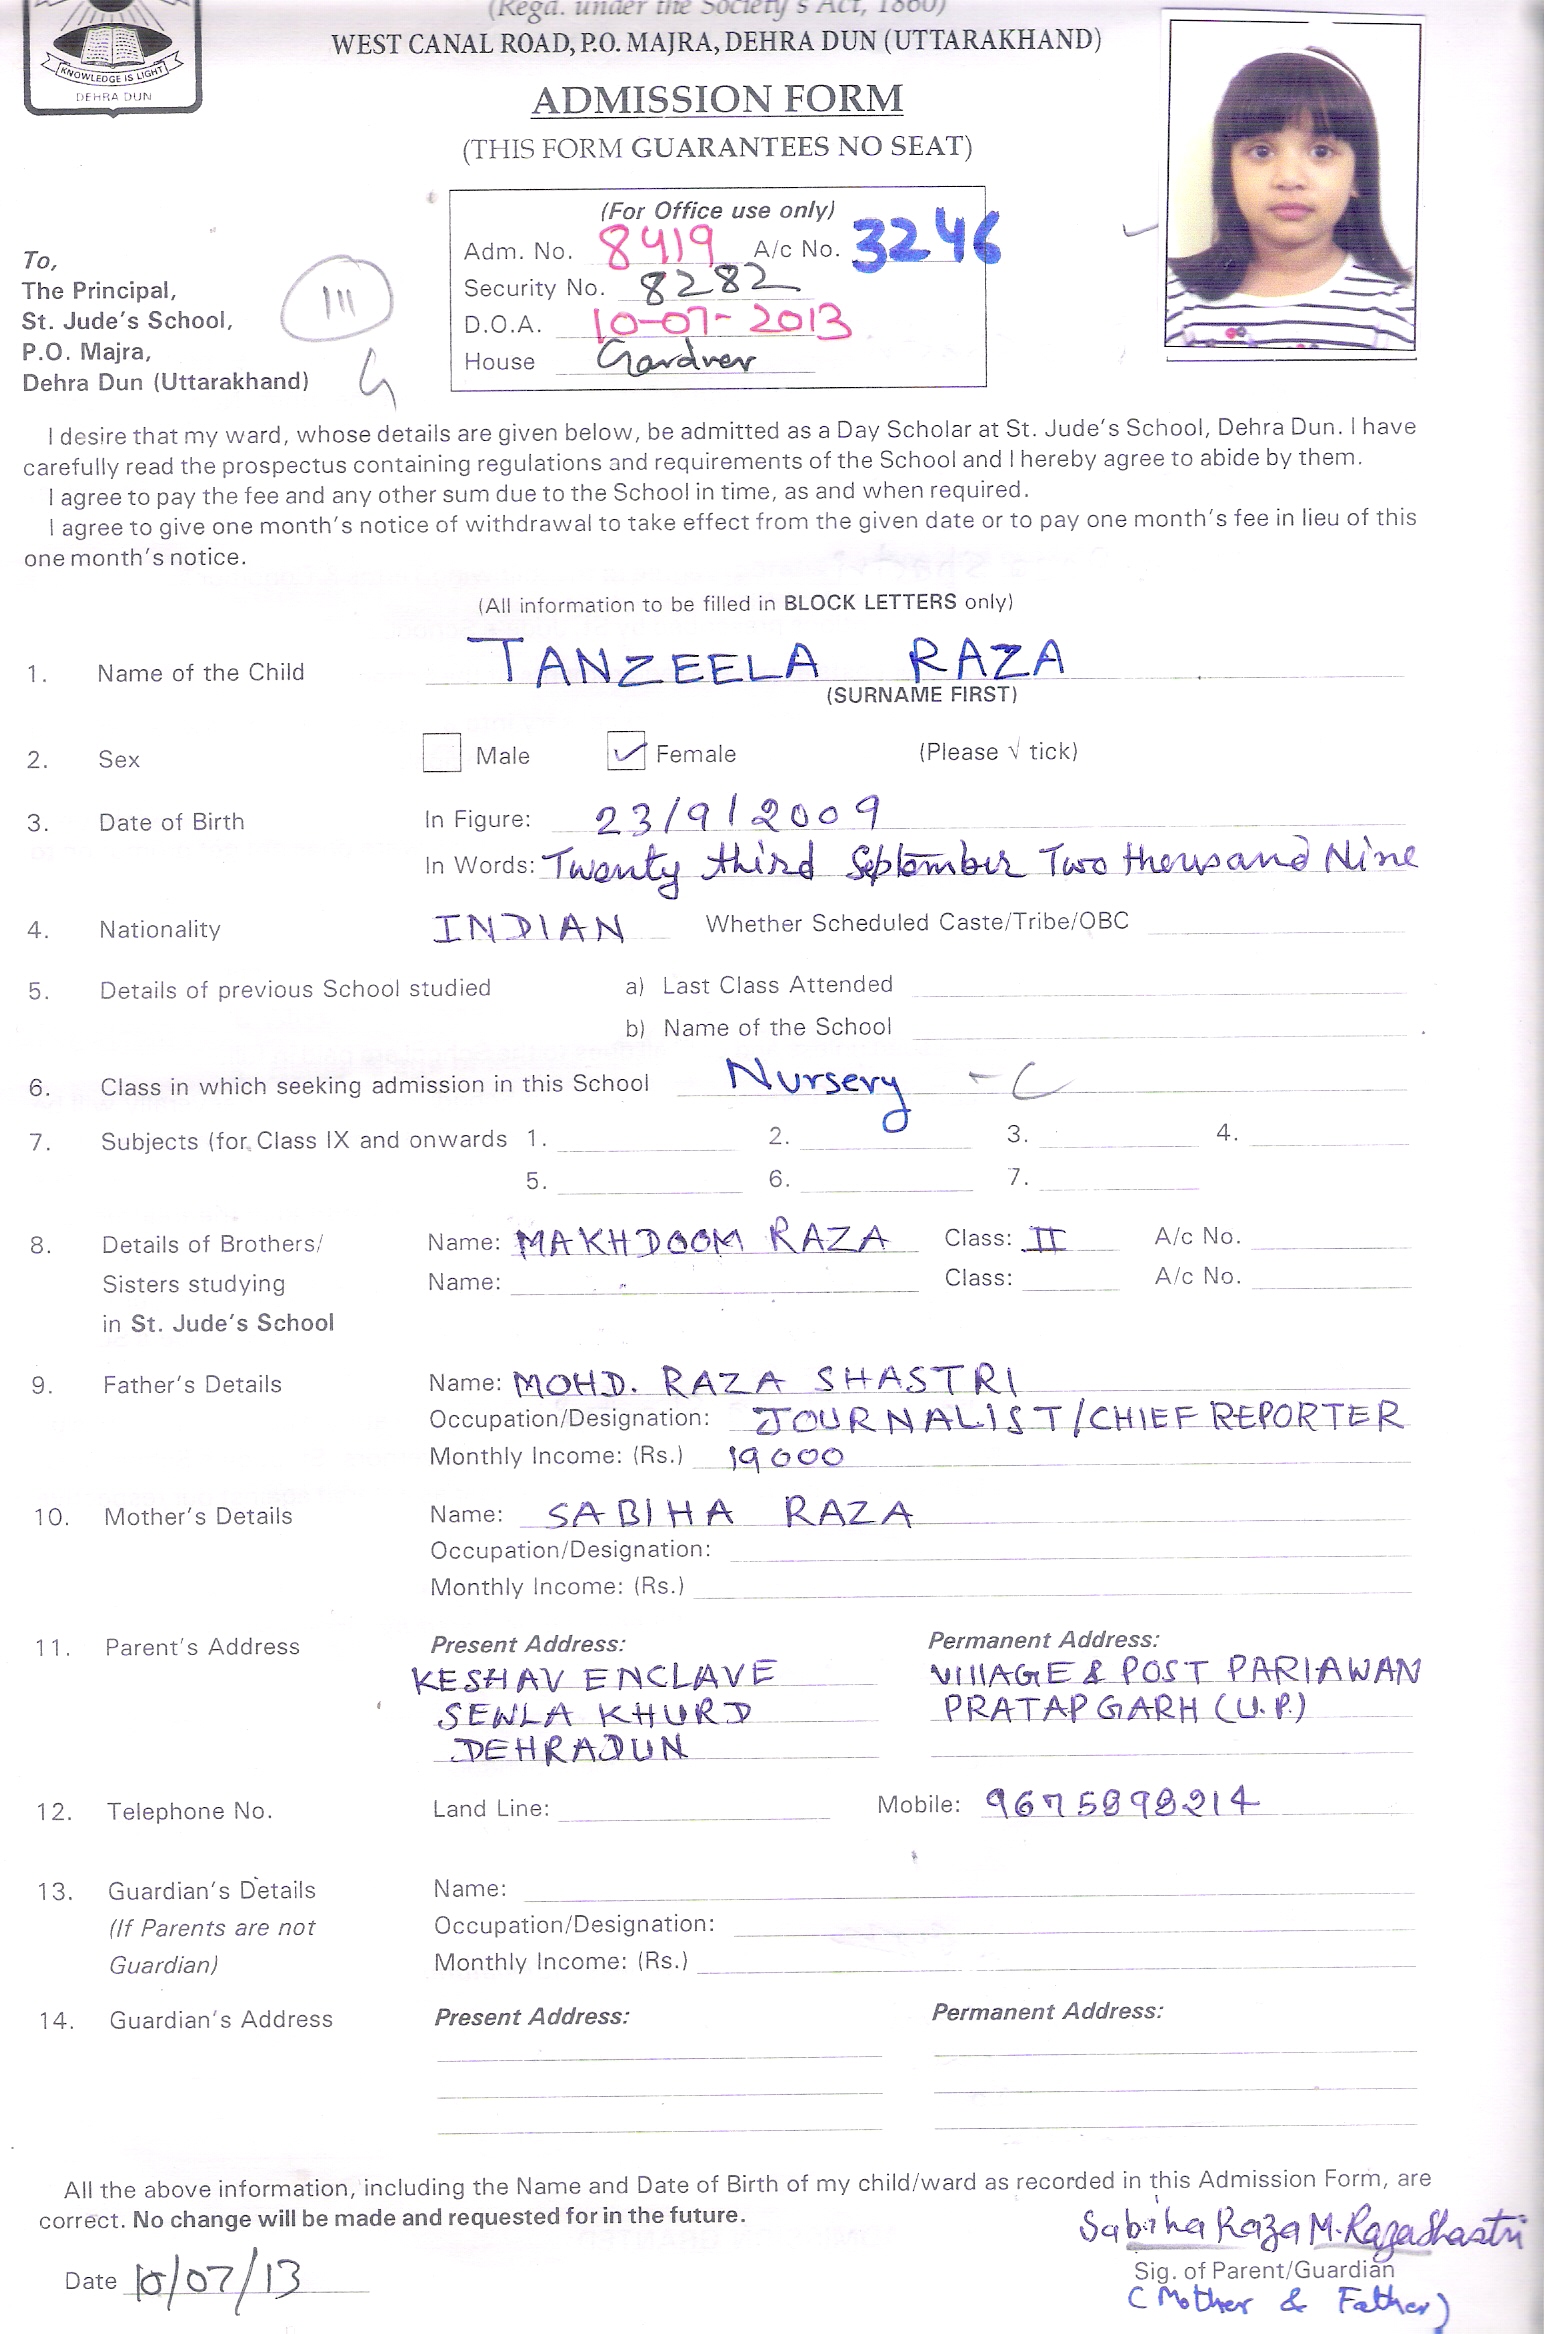 (Regd. under the Society's Act, 1860)
WEST CANAL ROAD, P.O. MAJRA, DEHRA DUN (UTTARAKHAND)
KNOWLEDGE IS LIGHT
DEHRA DUN
ADMISSION FORM
(THIS FORM GUARANTEES NO SEAT)
(For Office use only)
Adm. No. 8419 A/c No. 3246
Security No. 8282
D.O.A. 10-07-2013
House Gardner
To,
The Principal,
St. Jude's School,
P.O. Majra,
Dehra Dun (Uttarakhand)
III
G
I desire that my ward, whose details are given below, be admitted as a Day Scholar at St. Jude's School, Dehra Dun. I have
carefully read the prospectus containing regulations and requirements of the School and I hereby agree to abide by them.
I agree to pay the fee and any other sum due to the School in time, as and when required.
I agree to give one month's notice of withdrawal to take effect from the given date or to pay one month's fee in lieu of this
one month's notice.
(All information to be filled in BLOCK LETTERS only)
1. Name of the Child TANZEELA RAZA
(SURNAME FIRST)
2. Sex Male ✓ Female (Please √ tick)
3. Date of Birth In Figure: 23/9/2009
In Words: Twenty third September Two thousand Nine
4. Nationality INDIAN Whether Scheduled Caste/Tribe/OBC
5. Details of previous School studied a) Last Class Attended
b) Name of the School
6. Class in which seeking admission in this School Nursery - C
7. Subjects (for Class IX and onwards 1. 2. 3. 4.
5. 6. 7.
8. Details of Brothers/ Name: MAKHDOOM RAZA Class: II A/c No.
Sisters studying Name: Class: A/c No.
in St. Jude's School
9. Father's Details Name: MOHD. RAZA SHASTRI
Occupation/Designation: JOURNALIST/CHIEF REPORTER
Monthly Income: (Rs.) 19000
10. Mother's Details Name: SABIHA RAZA
Occupation/Designation:
Monthly Income: (Rs.)
11. Parent's Address Present Address: Permanent Address:
KESHAV ENCLAVE VIllAGE & POST PARIAWAN
SEWLA KHURD PRATAPGARH (U.P.)
DEHRADUN
12. Telephone No. Land Line: Mobile:
13. Guardian's Details Name:
(If Parents are not Occupation/Designation:
Guardian) Monthly Income: (Rs.)
14. Guardian's Address Present Address: Permanent Address:
All the above information, including the Name and Date of Birth of my child/ward as recorded in this Admission Form, are
correct. No change will be made and requested for in the future.
Sabiha Raza M. Raza Shastri
Date 10/07/13 Sig. of Parent/Guardian
(Mother & Father)